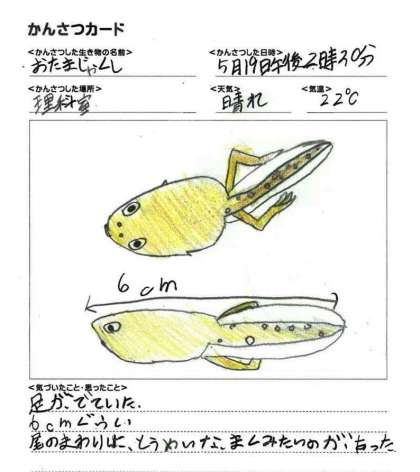 かんさつカード
<かんさつした生き物の名前> <かんさつした日時>
おたまじゃくし 5月19日午後2時30分
<かんさつした場所> <天気> <気温>
理科室 晴れ 22℃
6cm
<気づいたこと・思ったこと>
足が、でていた。
6cmぐらい
尾のまわりは、とうめいな、まくみたいのが、あった